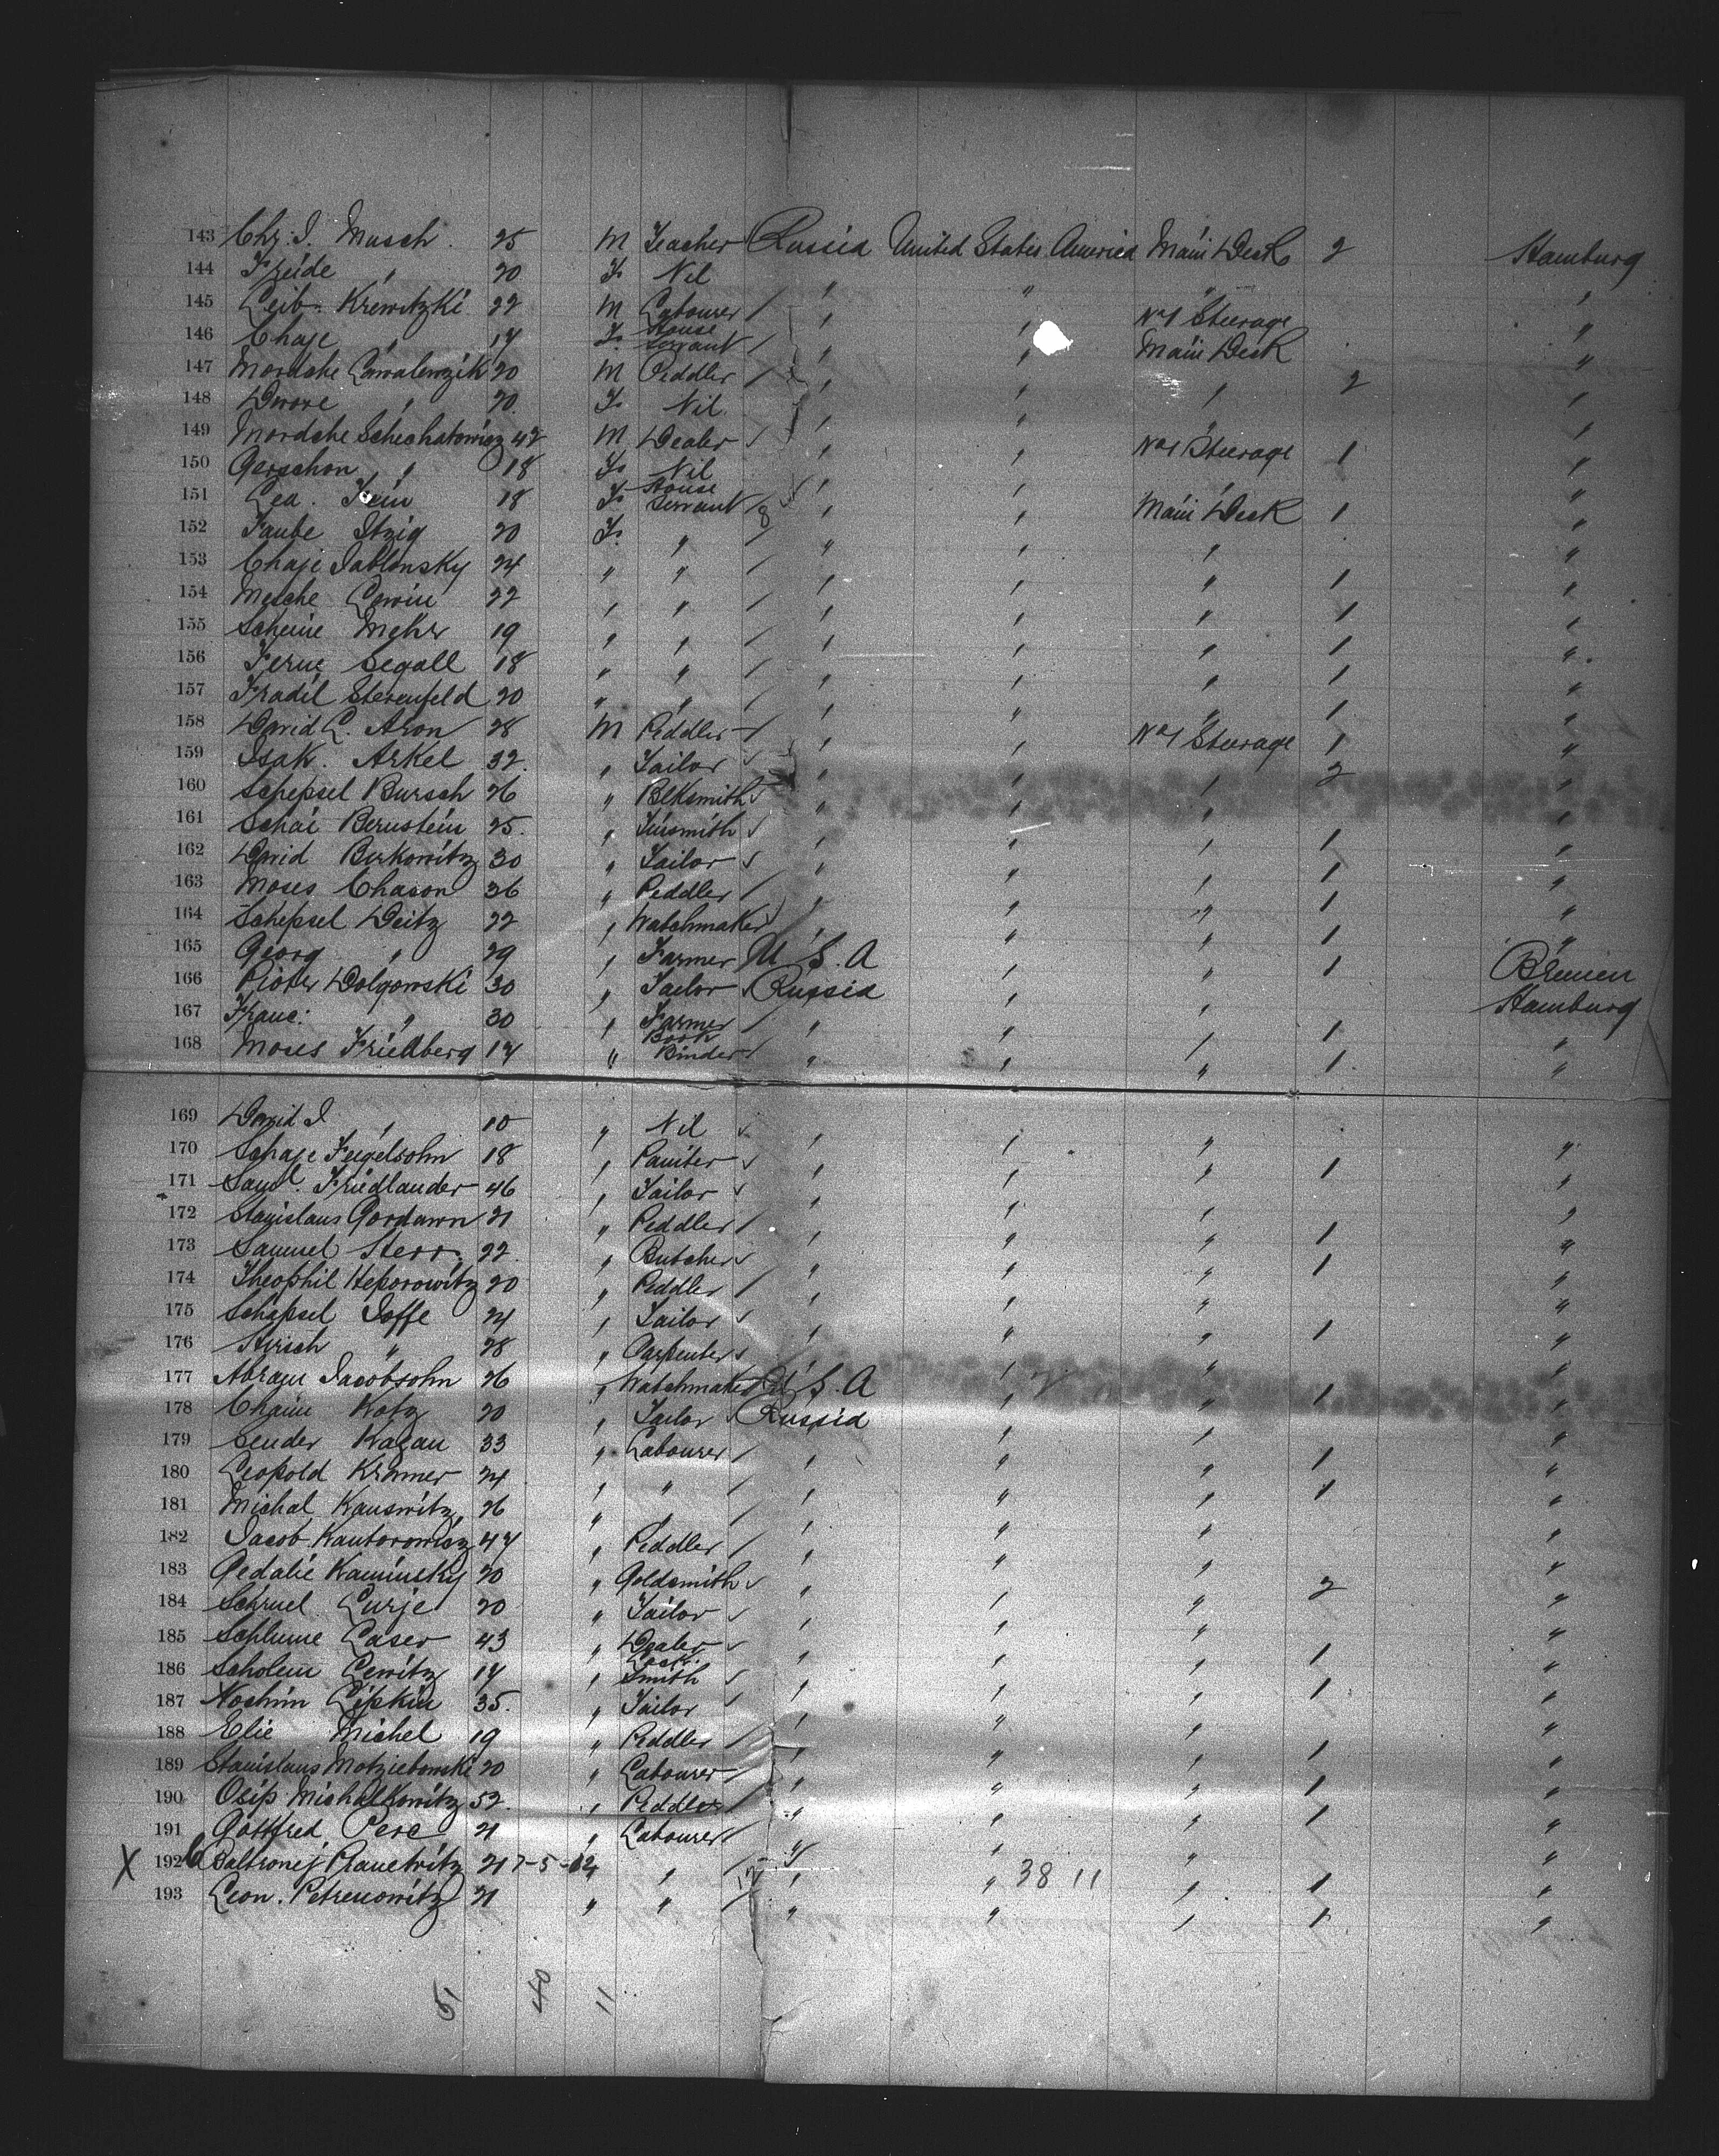 143 Chr. I. Musch 25 M Teacher Russia United States America Main Deck 2 Hamburg
144 Freide " 20 F Nil " " " "
145 Leib Krewitzki 22 M Labourer / " " No 1 Steerage "
146 Chaje " 17 F House Servant / " " Main Deck "
147 Mordche Cawalewzik 20 M Peddler / " " " 2 "
148 Dwore " 20 F Nil " " "
149 Mordche Schechatowicz 42 M Dealer " " No 1 Steerage 1 "
150 Gerschon " 18 F Nil " " " "
151 Lea Fein 18 F House Servant / 8 " " Main Deck 1 "
152 Taube Itzig 20 F " / " " " "
153 Chaje Jablonsky 24 " " / " " " 1 "
154 Mesche Lewin 22 " " / " " " 1 "
155 Scheine Mehr 19 " " / " " " 1 "
156 Ferne Segall 18 " " / " " " 1 "
157 Fradil Sterenfeld 20 " " / " " " 1 "
158 David L. Aron 28 M Peddler / " " No 1 Steerage 1 "
159 Isak Arkel 32 " Tailor " " " 2 "
160 Schepsel Bursch 26 " Blksmith " " " "
161 Schai Bernstein 25 " Tinsmith " " " 1 "
162 David Berkowitz 30 " Tailor " " " 1 "
163 Moses Chason 36 " Peddler / " " " 1 "
164 Schepsel Deitz 22 " Watchmaker " " " 1 "
165 Georg " 29 " Farmer U.S.A " " 1 Bremen
166 Pioter Dolgowski 30 " Tailor Russia " " Hamburg
167 Franc: " 30 " Farmer / " " " 1 "
168 Moses Friedberg 17 " Book Binder / " " " 1 "
169 David I " 10 " Nil " " " "
170 Schaje Feigelsohn 18 " Painter " " " 1 "
171 Saml. Friedlander 46 " Tailor " " " "
172 Stanislaus Gordawn 21 " Peddler / " " " 1 "
173 Samuel Sterr 22 " Butcher " " " 1 "
174 Theophil Heporowitz 20 " Peddler / " " " "
175 Schapsel Joffe 24 " Tailor " " " 1 "
176 Hirsch " 28 " Carpenter " " "
177 Abram Jacobsohn 26 " Watchmaker U.S.A " " 1 "
178 Chaim Katz 20 " Tailor Russia " " "
179 Sender Kagan 33 " Labourer / " " " 1 "
180 Leopold Kramer 24 " " / " " " 1 "
181 Michal Kauswitz 26 " " / " " " "
182 Jacob Kantorowicz 47 " Peddler / " " " "
183 Gedalie Kaminsky 20 " Goldsmith " " " 2 "
184 Schruel Lurje 20 " Tailor " " " "
185 Schlume Laser 43 " Dealer " " " 1 "
186 Scholem Lewitz 17 " Lock Smith " " " 1 "
187 Nochim Lipkin 35 " Tailor " " " "
188 Elie Michel 19 " Peddler / " " " 1 "
189 Stanislaus Motziebowski 20 " Labourer / " " " 1 "
190 Osip Michalkowitz 52 " Peddler / " " " 1 "
191 Gottfred Pere 21 " Labourer / " " " "
X 192 Baltromej Prauetwitz 21 7-5- " " / " " 38 11 " 1 "
193 Leon. Petrenowitz 21 " " / " " " 1 "
40 11